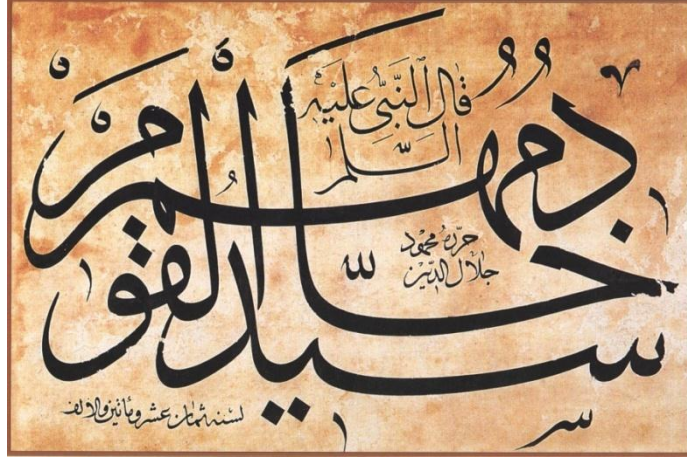 قَالَ ٱلنَّبِيُّ عَلَيْهِ
السَّلم
سيد القوم خادمهم
حرره محمود
جلال الدين
لسنه ثمان عشر ومأتين والالف